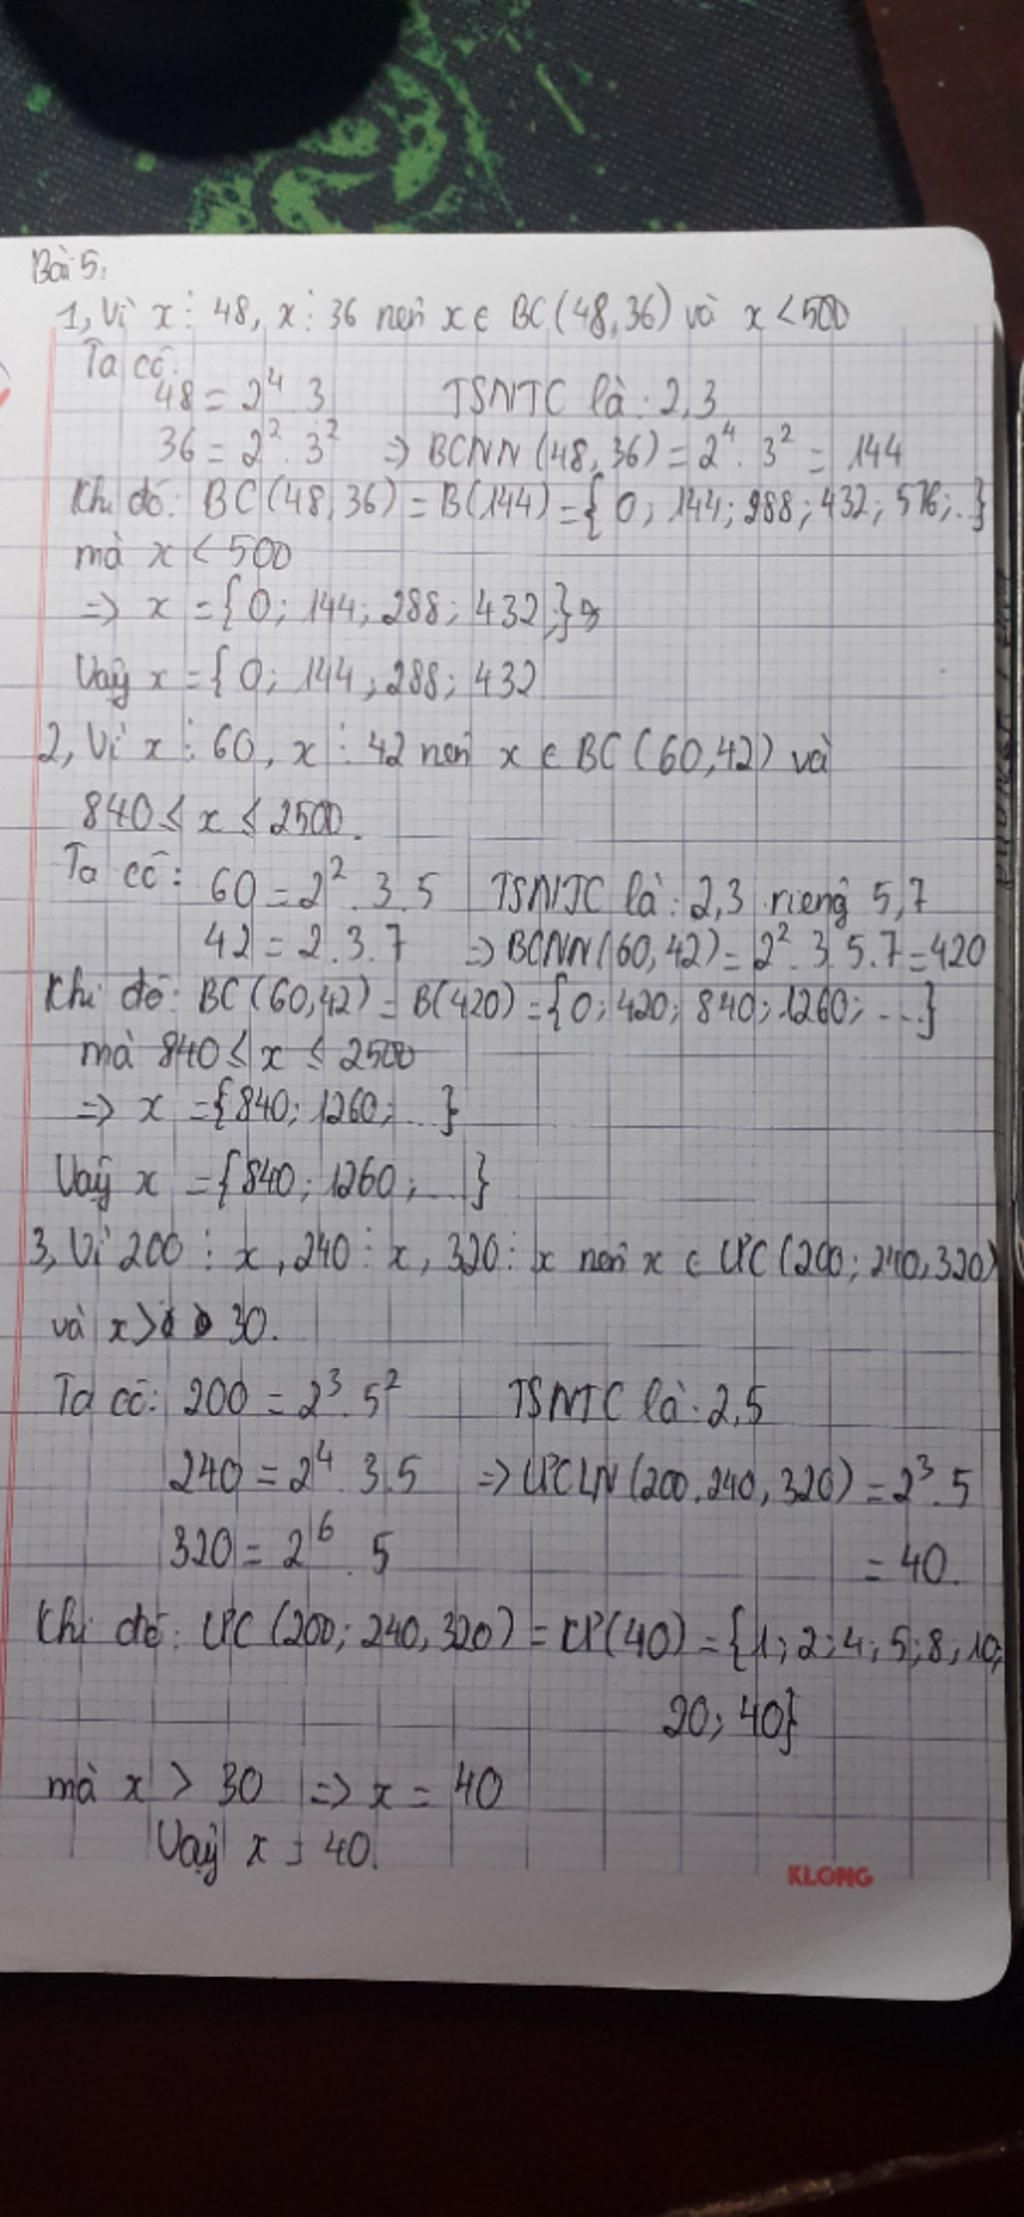 Bài 5:
1, Vì x ⋮ 48, x ⋮ 36 nên x ∈ BC(48,36) và x < 500
Ta có:
48 = 2⁴ . 3 TSNTC là: 2,3
36 = 2² . 3² => BCNN(48,36) = 2⁴ . 3² = 144
Khi đó: BC(48,36) = B(144) = {0; 144; 288; 432; 576; ..}
mà x < 500
=> x = {0; 144; 288; 432;}
Vậy x = {0; 144; 288; 432
2, Vì x ⋮ 60, x ⋮ 42 nên x ∈ BC(60,42) và
840 ≤ x ≤ 2500.
Ta có: 60 = 2² . 3 . 5 TSNTC là: 2,3 riêng 5,7
42 = 2 . 3 . 7 => BCNN(60,42) = 2² . 3 . 5 . 7 = 420
Khi đó: BC(60,42) = B(420) = {0; 420; 840; 1260; ....}
mà 840 ≤ x ≤ 2500
=> x = {840; 1260; ...}
Vậy x = {840; 1260; ...}
3, Vì 200 ⋮ x, 240 ⋮ x, 320 ⋮ x nên x ∈ ƯC(200; 240, 320)
và x > 30.
Ta có: 200 = 2³ . 5² TSNTC là: 2,5
240 = 2⁴ . 3 . 5 => ƯCLN(200, 240, 320) = 2³ . 5
320 = 2⁶ . 5 = 40.
Khi đó: ƯC(200; 240, 320) = Ư(40) = {1; 2; 4; 5; 8; 10;
20; 40}
mà x > 30 => x = 40
Vậy x = 40.
KLONG